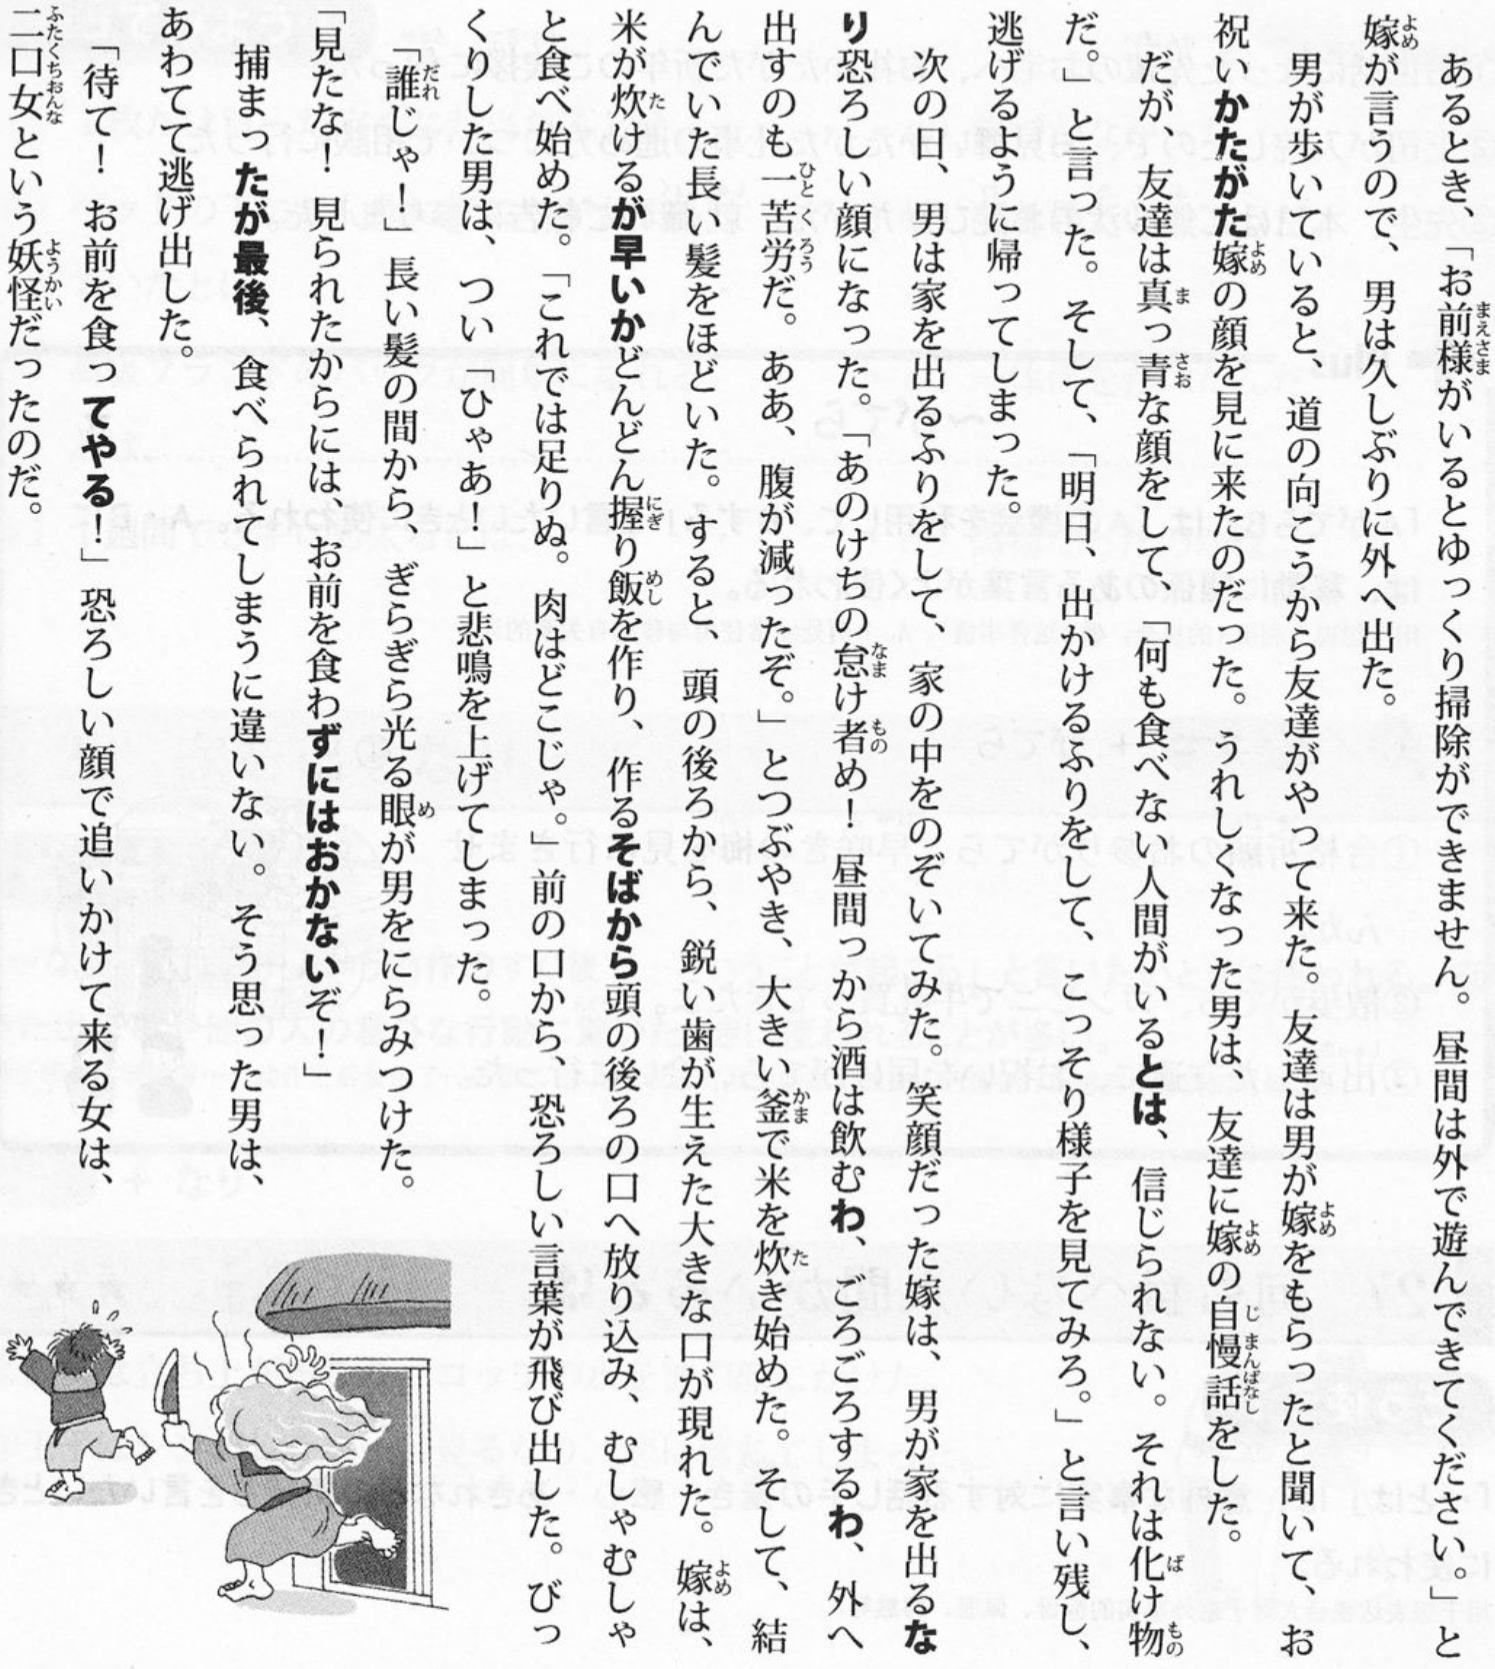 あるとき、「お前様がいるとゆっくり掃除ができません。昼間は外で遊んできてください。」と
嫁が言うので、男は久しぶりに外へ出た。
男が歩いていると、道の向こうから友達がやって来た。友達は男が嫁をもらったと聞いて、お
祝いかたがた嫁の顔を見に来たのだった。うれしくなった男は、友達に嫁の自慢話をした。
だが、友達は真っ青な顔をして、「何も食べない人間がいるとは、信じられない。それは化け物
だ。」と言った。そして、「明日、出かけるふりをして、こっそり様子を見てみろ。」と言い残し、
逃げるように帰ってしまった。
次の日、男は家を出るふりをして、家の中をのぞいてみた。笑顔だった嫁は、男が家を出るな
り恐ろしい顔になった。「あのけちの怠け者め！昼間っから酒は飲むわ、ごろごろするわ、外へ
出すのも一苦労だ。ああ、腹が減ったぞ。」とつぶやき、大きい釜で米を炊き始めた。そして、結
んでいた長い髪をほどいた。すると、頭の後ろから、鋭い歯が生えた大きな口が現れた。嫁は、
米が炊けるが早いかどんどん握り飯を作り、作るそばから頭の後ろの口へ放り込み、むしゃむしゃ
と食べ始めた。「これでは足りぬ。肉はどこじゃ。」前の口から、恐ろしい言葉が飛び出した。びっ
くりした男は、つい「ひゃあ！」と悲鳴を上げてしまった。
「誰じゃ！」長い髪の間から、ぎらぎら光る眼が男をにらみつけた。
「見たな！見られたからには、お前を食わずにはおかないぞ！」
捕まったが最後、食べられてしまうに違いない。そう思った男は、
あわてて逃げ出した。
「待て！お前を食ってやる！」恐ろしい顔で追いかけて来る女は、
二口女という妖怪だったのだ。